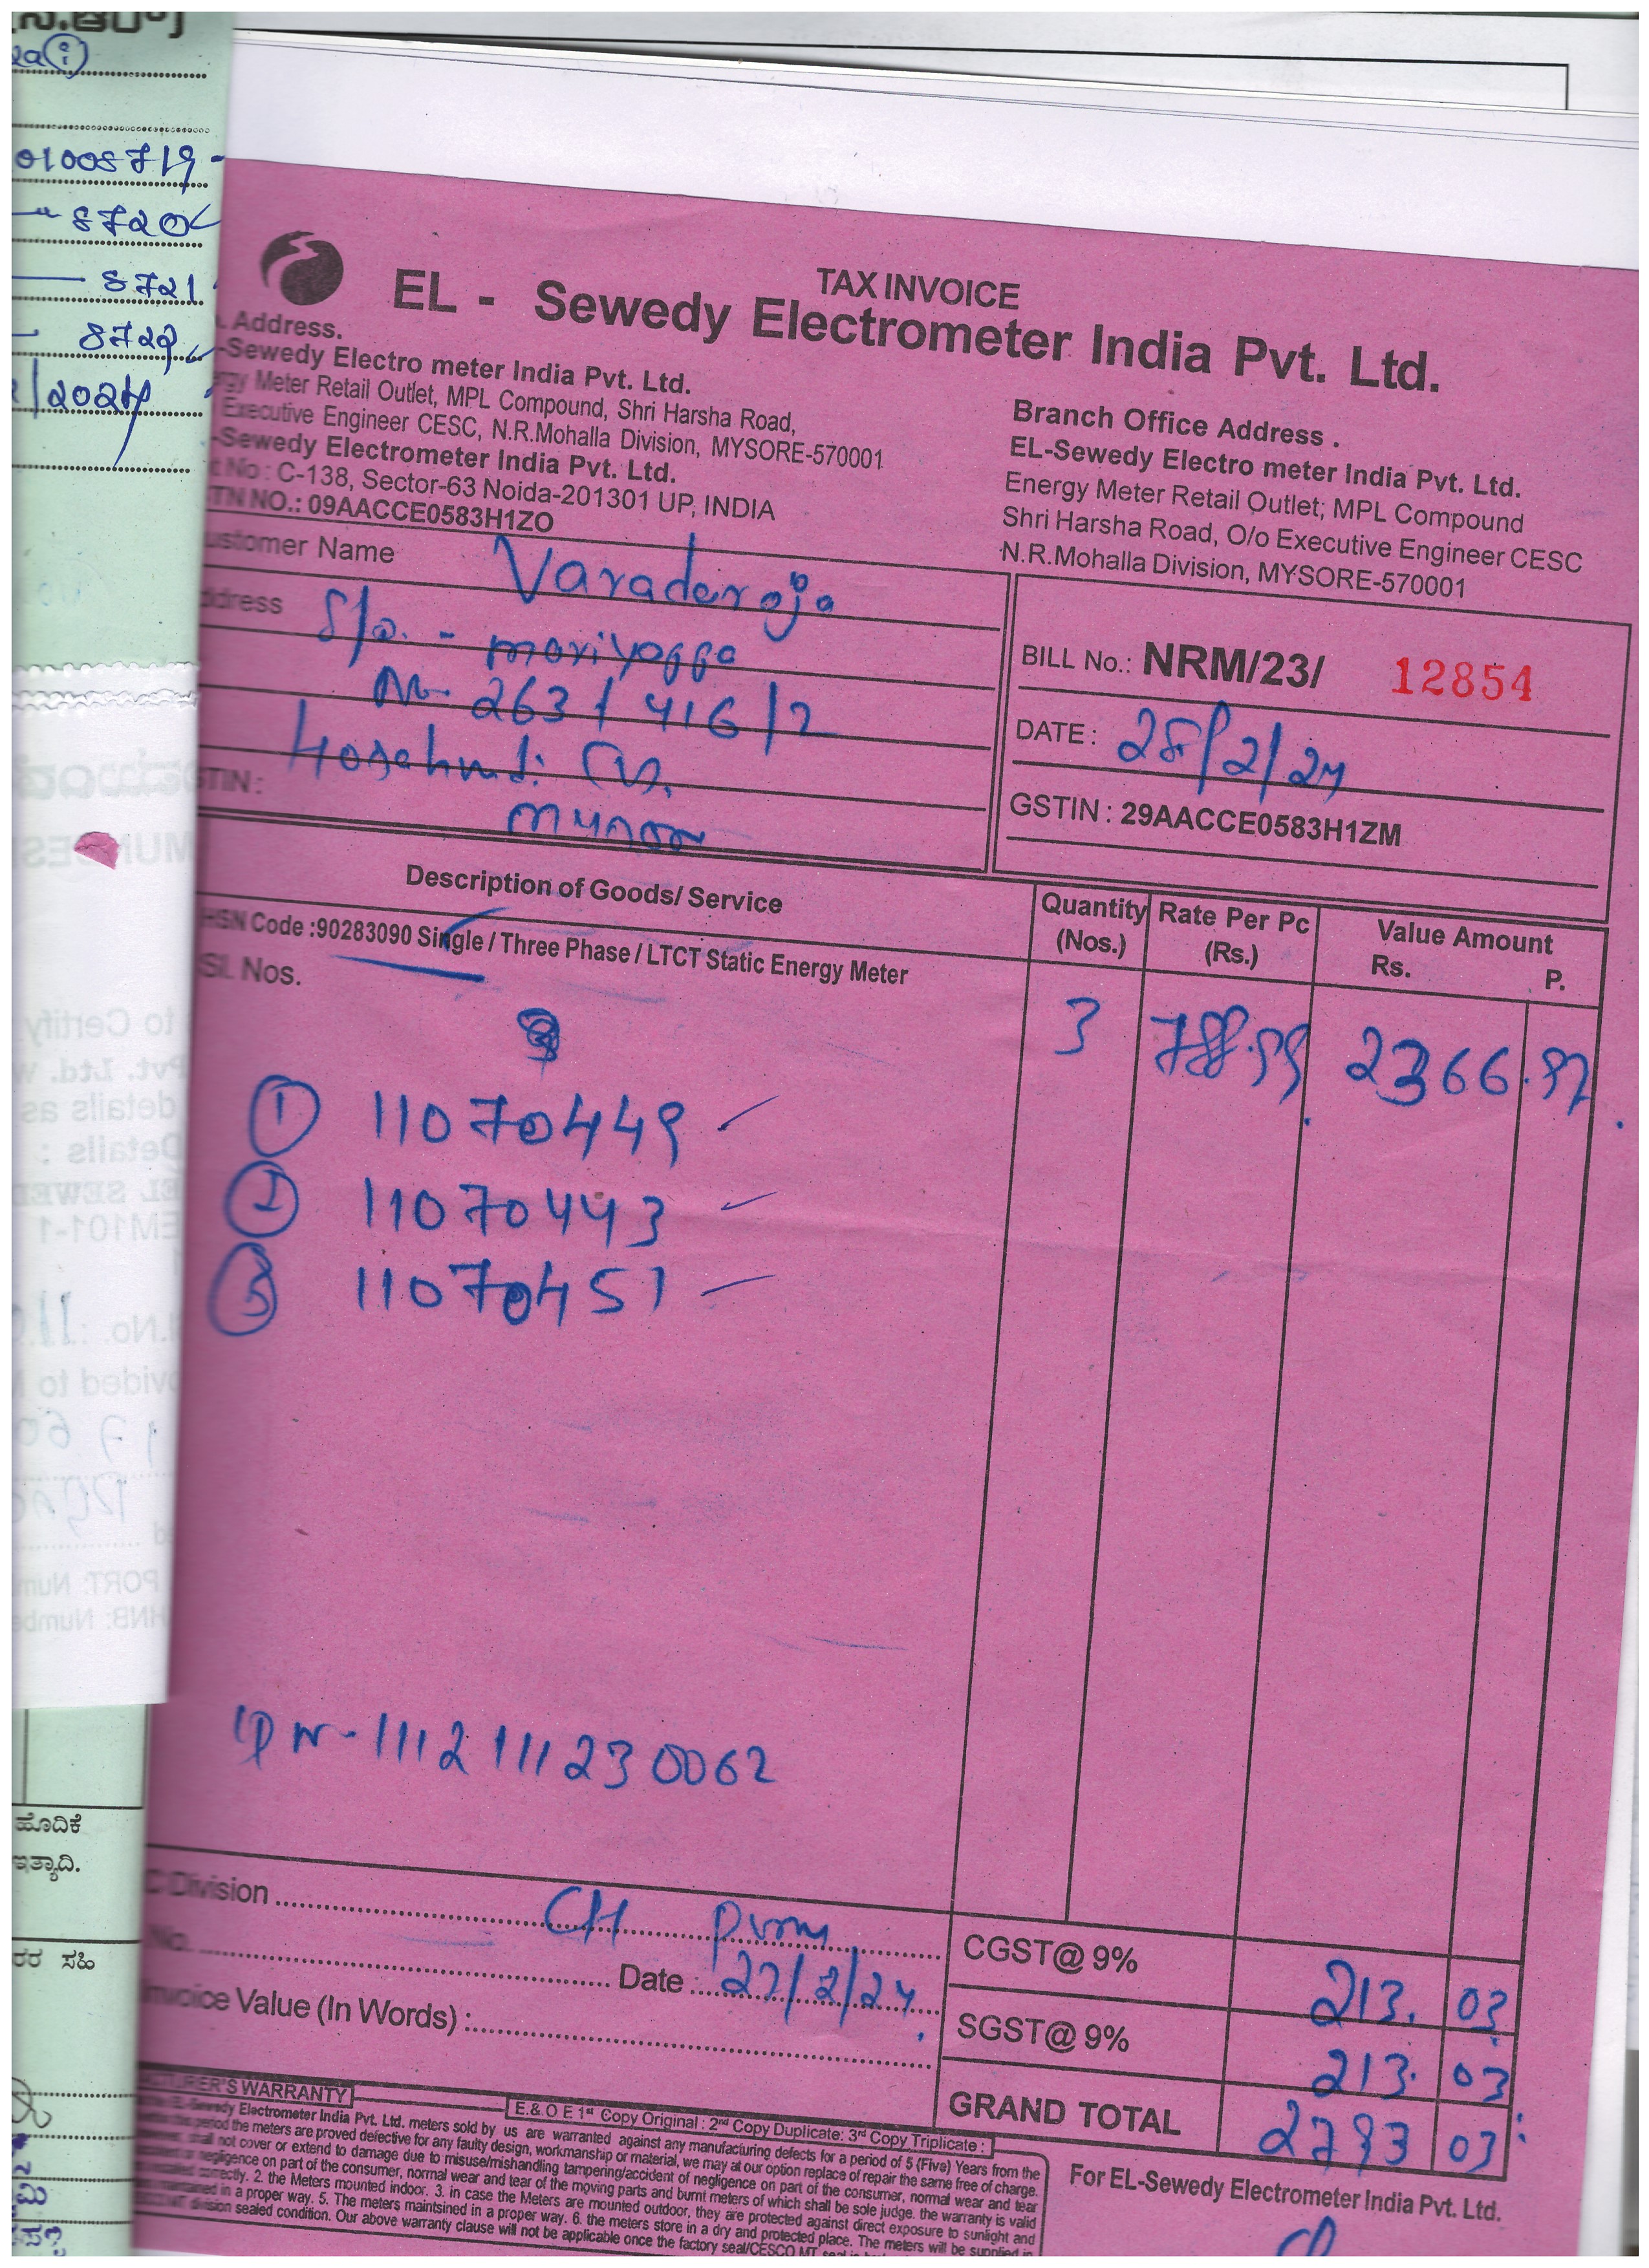 01008719
8720
8721
8722
/2024
TAX INVOICE
EL - Sewedy Electrometer India Pvt. Ltd.
Address.
-Sewedy Electro meter India Pvt. Ltd.
gy Meter Retail Outlet, MPL Compound, Shri Harsha Road,
Executive Engineer CESC, N.R.Mohalla Division, MYSORE-570001
-Sewedy Electrometer India Pvt. Ltd.
No : C-138, Sector-63 Noida-201301 UP, INDIA
TN NO.: 09AACCE0583H1ZO
Branch Office Address .
EL-Sewedy Electro meter India Pvt. Ltd.
Energy Meter Retail Outlet; MPL Compound
Shri Harsha Road, O/o Executive Engineer CESC
N.R.Mohalla Division, MYSORE-570001
ustomer Name Varadaroja
ddress S/o. - moriyappa
263 / 416 / 2
TIN :
BILL No.: NRM/23/ 12854
DATE : 28/2/24
GSTIN : 29AACCE0583H1ZM
Description of Goods/ Service
Quantity (Nos.)
Rate Per Pc (Rs.)
Value Amount
Rs. P.
HSN Code :90283090 Single / Three Phase / LTCT Static Energy Meter
Sl. Nos.
3 788.99 2366.97
1 11070449
2 11070443
3 11070451
11121111230062
ಹೊದಿಕೆ
ಇತ್ಯಾದಿ.
ರರ ಸಹಿ
C Division CH
No. Date : 27/2/24
Invoice Value (In Words) :
CGST@ 9% 213. 03
SGST@ 9% 213. 03
GRAND TOTAL 2793 03
TURER'S WARRANTY
E.& O E 1st Copy Original : 2nd Copy Duplicate: 3rd Copy Triplicate :
EL-Sewedy Electrometer India Pvt. Ltd. meters sold by us are warranted against any manufacturing defects for a period of 5 (Five) Years from the
this period the meters are proved defective for any faulty design, workmanship or material, we may at our option replace of repair the same free of charge.
shall not cover or extend to damage due to misuse/mishandling tampering/accident of negligence on part of the consumer, normal wear and tear
negligence on part of the consumer, normal wear and tear of the moving parts and burnt meters of which shall be sole judge. the warranty is valid
correctly. 2. the Meters mounted indoor. 3. in case the Meters are mounted outdoor, they are protected against direct exposure to sunlight and
in a proper way. 5. The meters maintsined in a proper way. 6. the meters store in a dry and protected place. The meters will be supplied in
division sealed condition. Our above warranty clause will not be applicable once the factory seal/CESCO MT
For EL-Sewedy Electrometer India Pvt. Ltd.